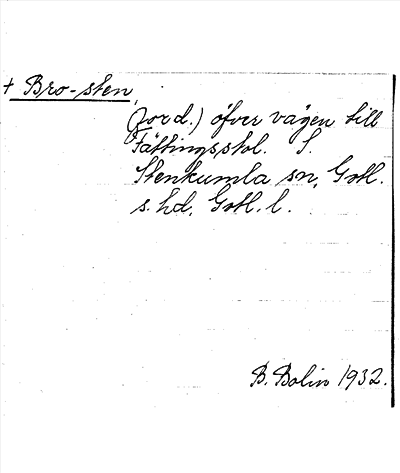 + Bro-sten,
(ford.) öfver vägen till
Tättingsstol. S.
Stenkumla sn, Gotl.
s. hd, Gotl. l.
B. Bolin 1932.